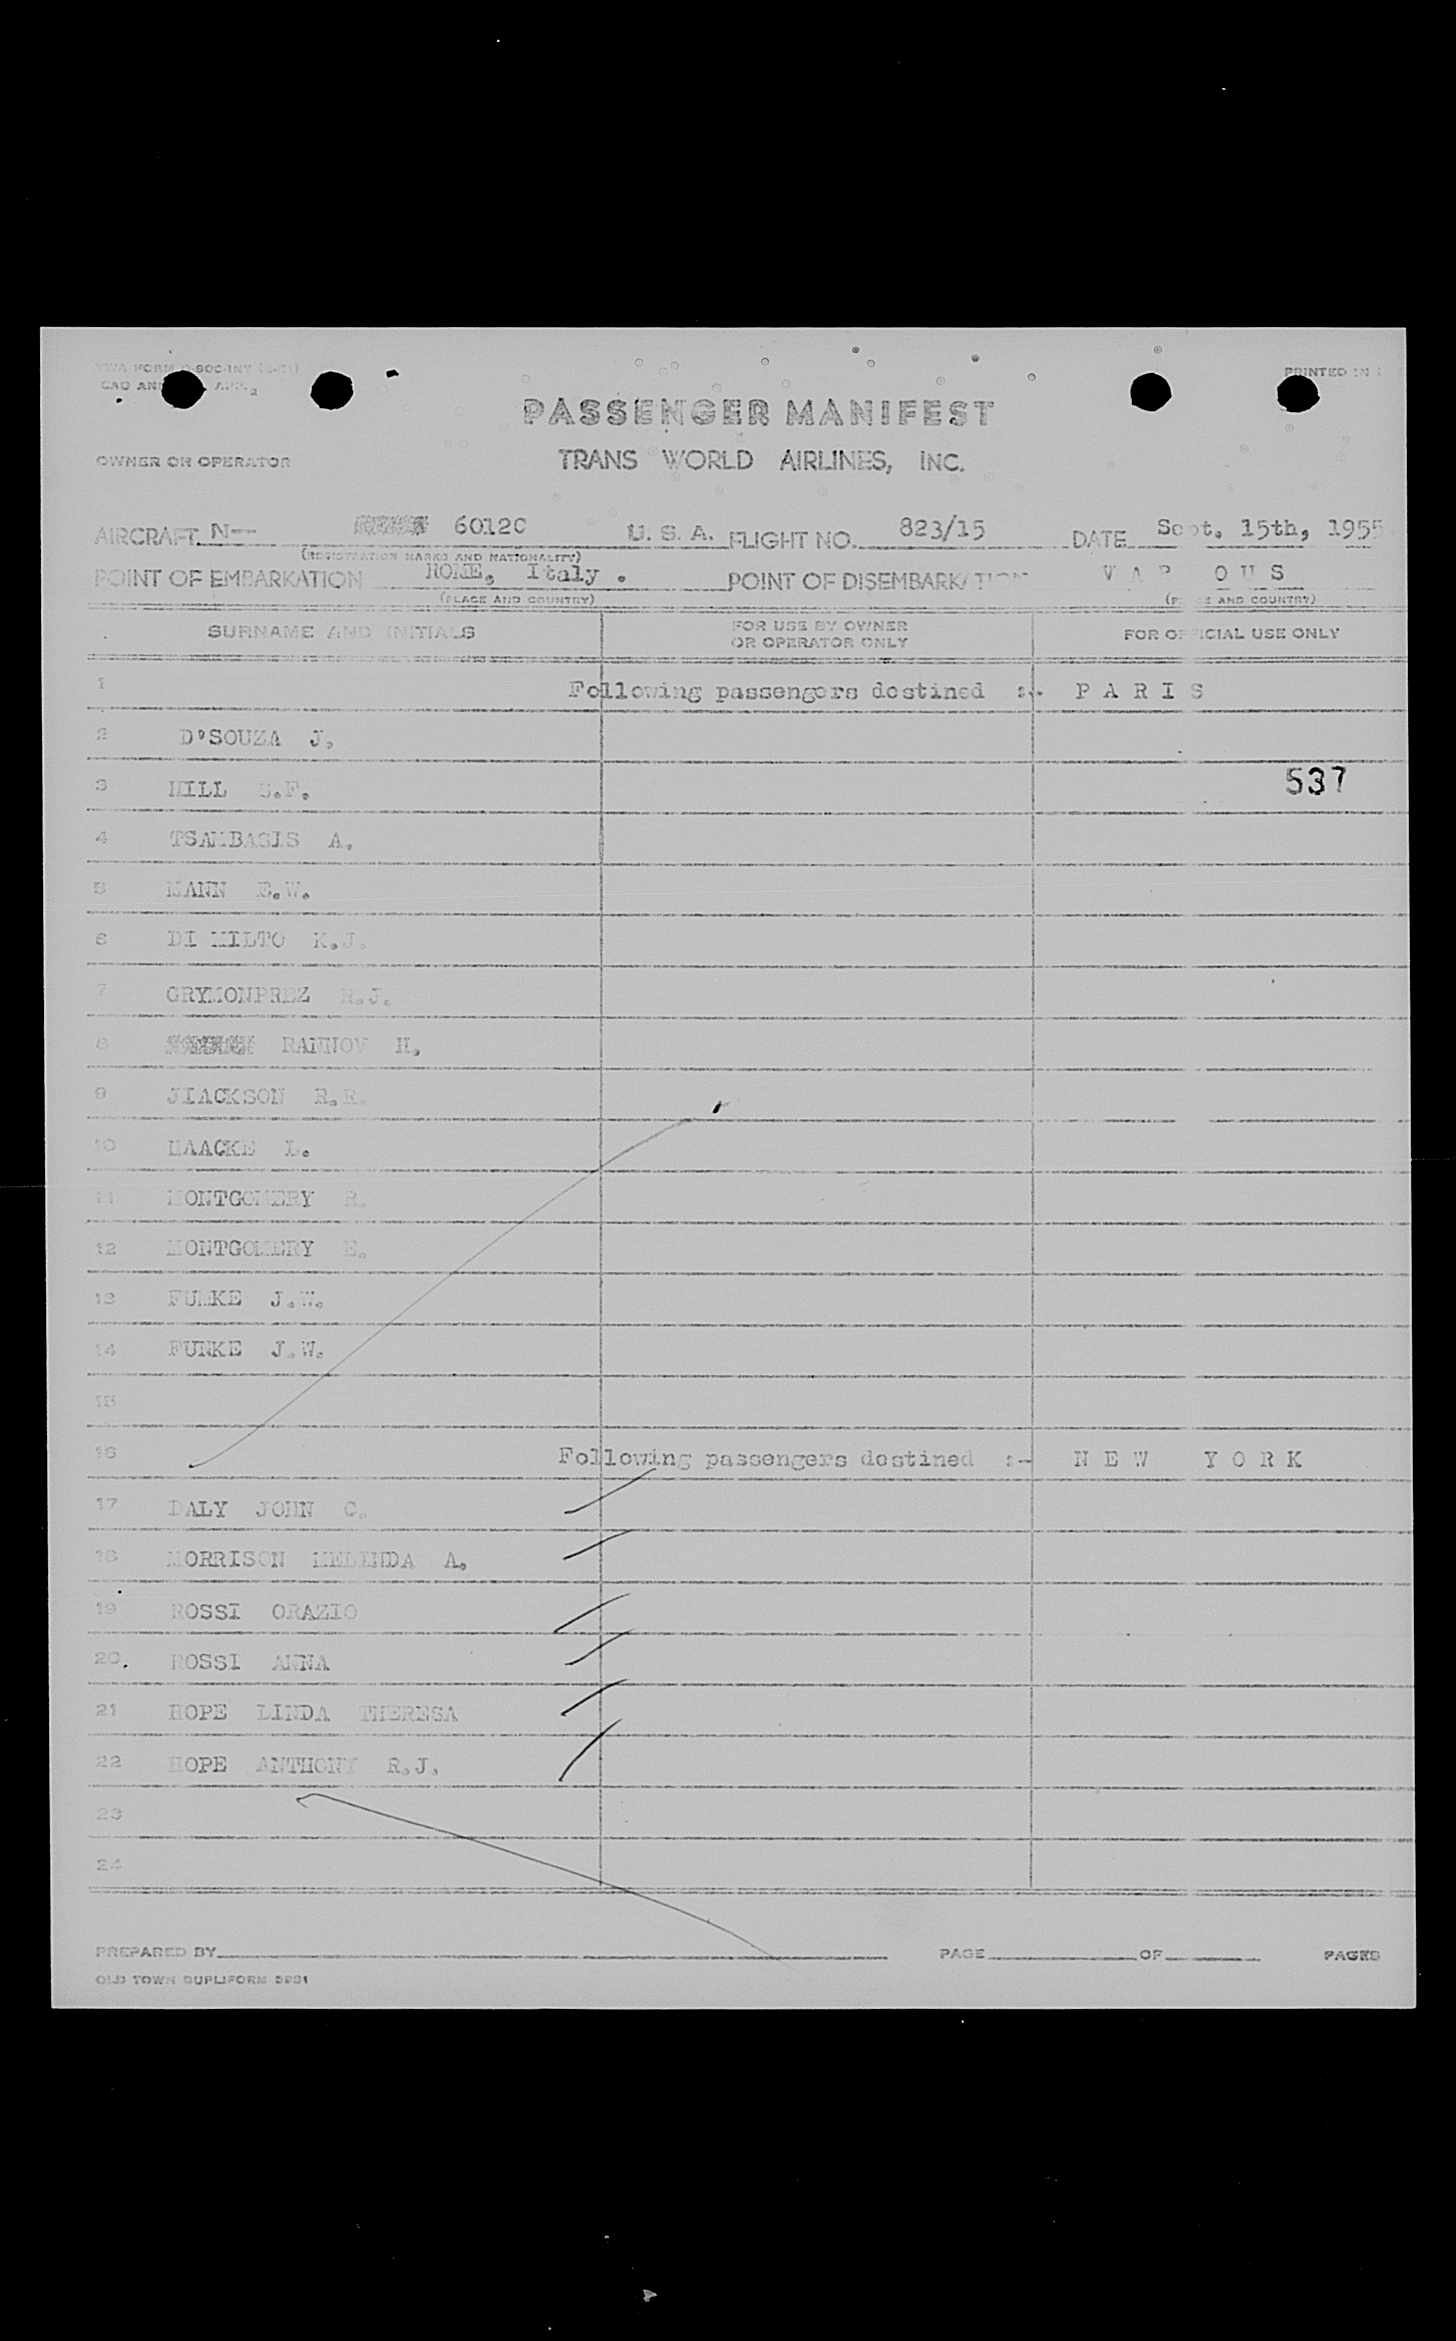 TWA FORM
PRINTED IN
PASSENGER MANIFEST
OWNER OR OPERATOR TRANS WORLD AIRLINES, INC.
AIRCRAFT N-- 6012C U. S. A. FLIGHT NO. 823/15 DATE Sept. 15th, 1955
(REGISTRATION MARKS AND NATIONALITY)
POINT OF EMBARKATION ROME, Italy . POINT OF DISEMBARKATION V A R I O U S
(PLACE AND COUNTRY) (PLACE AND COUNTRY)
SURNAME AND INITIALS FOR USE BY OWNER OR OPERATOR ONLY FOR OFFICIAL USE ONLY
1 Following passengers destined :- P A R I S
2 D'SOUZA J.
3 HILL .F. 537
4 TSAMBASIS A.
5 MANN E.W.
6 DI MILTO K.J.
7 GRYMONPREZ R.J.
8 RANNOV H.
9 JIACKSON R.R.
10 HAACKE L.
11 MONTGOMERY R.
12 MONTGOMERY E.
13 FUNKE J.W.
14 FUNKE J.W.
15
16 Following passengers destined :- N E W Y O R K
17 DALY JOHN C.
18 MORRISON MELINDA A.
19 ROSSI ORAZIO
20. ROSSI ANNA
21 HOPE LINDA THERESA
22 HOPE ANTHONY R.J.
23
24
PREPARED BY PAGE OF PAGES
OLD TOWN DUPLIFORM